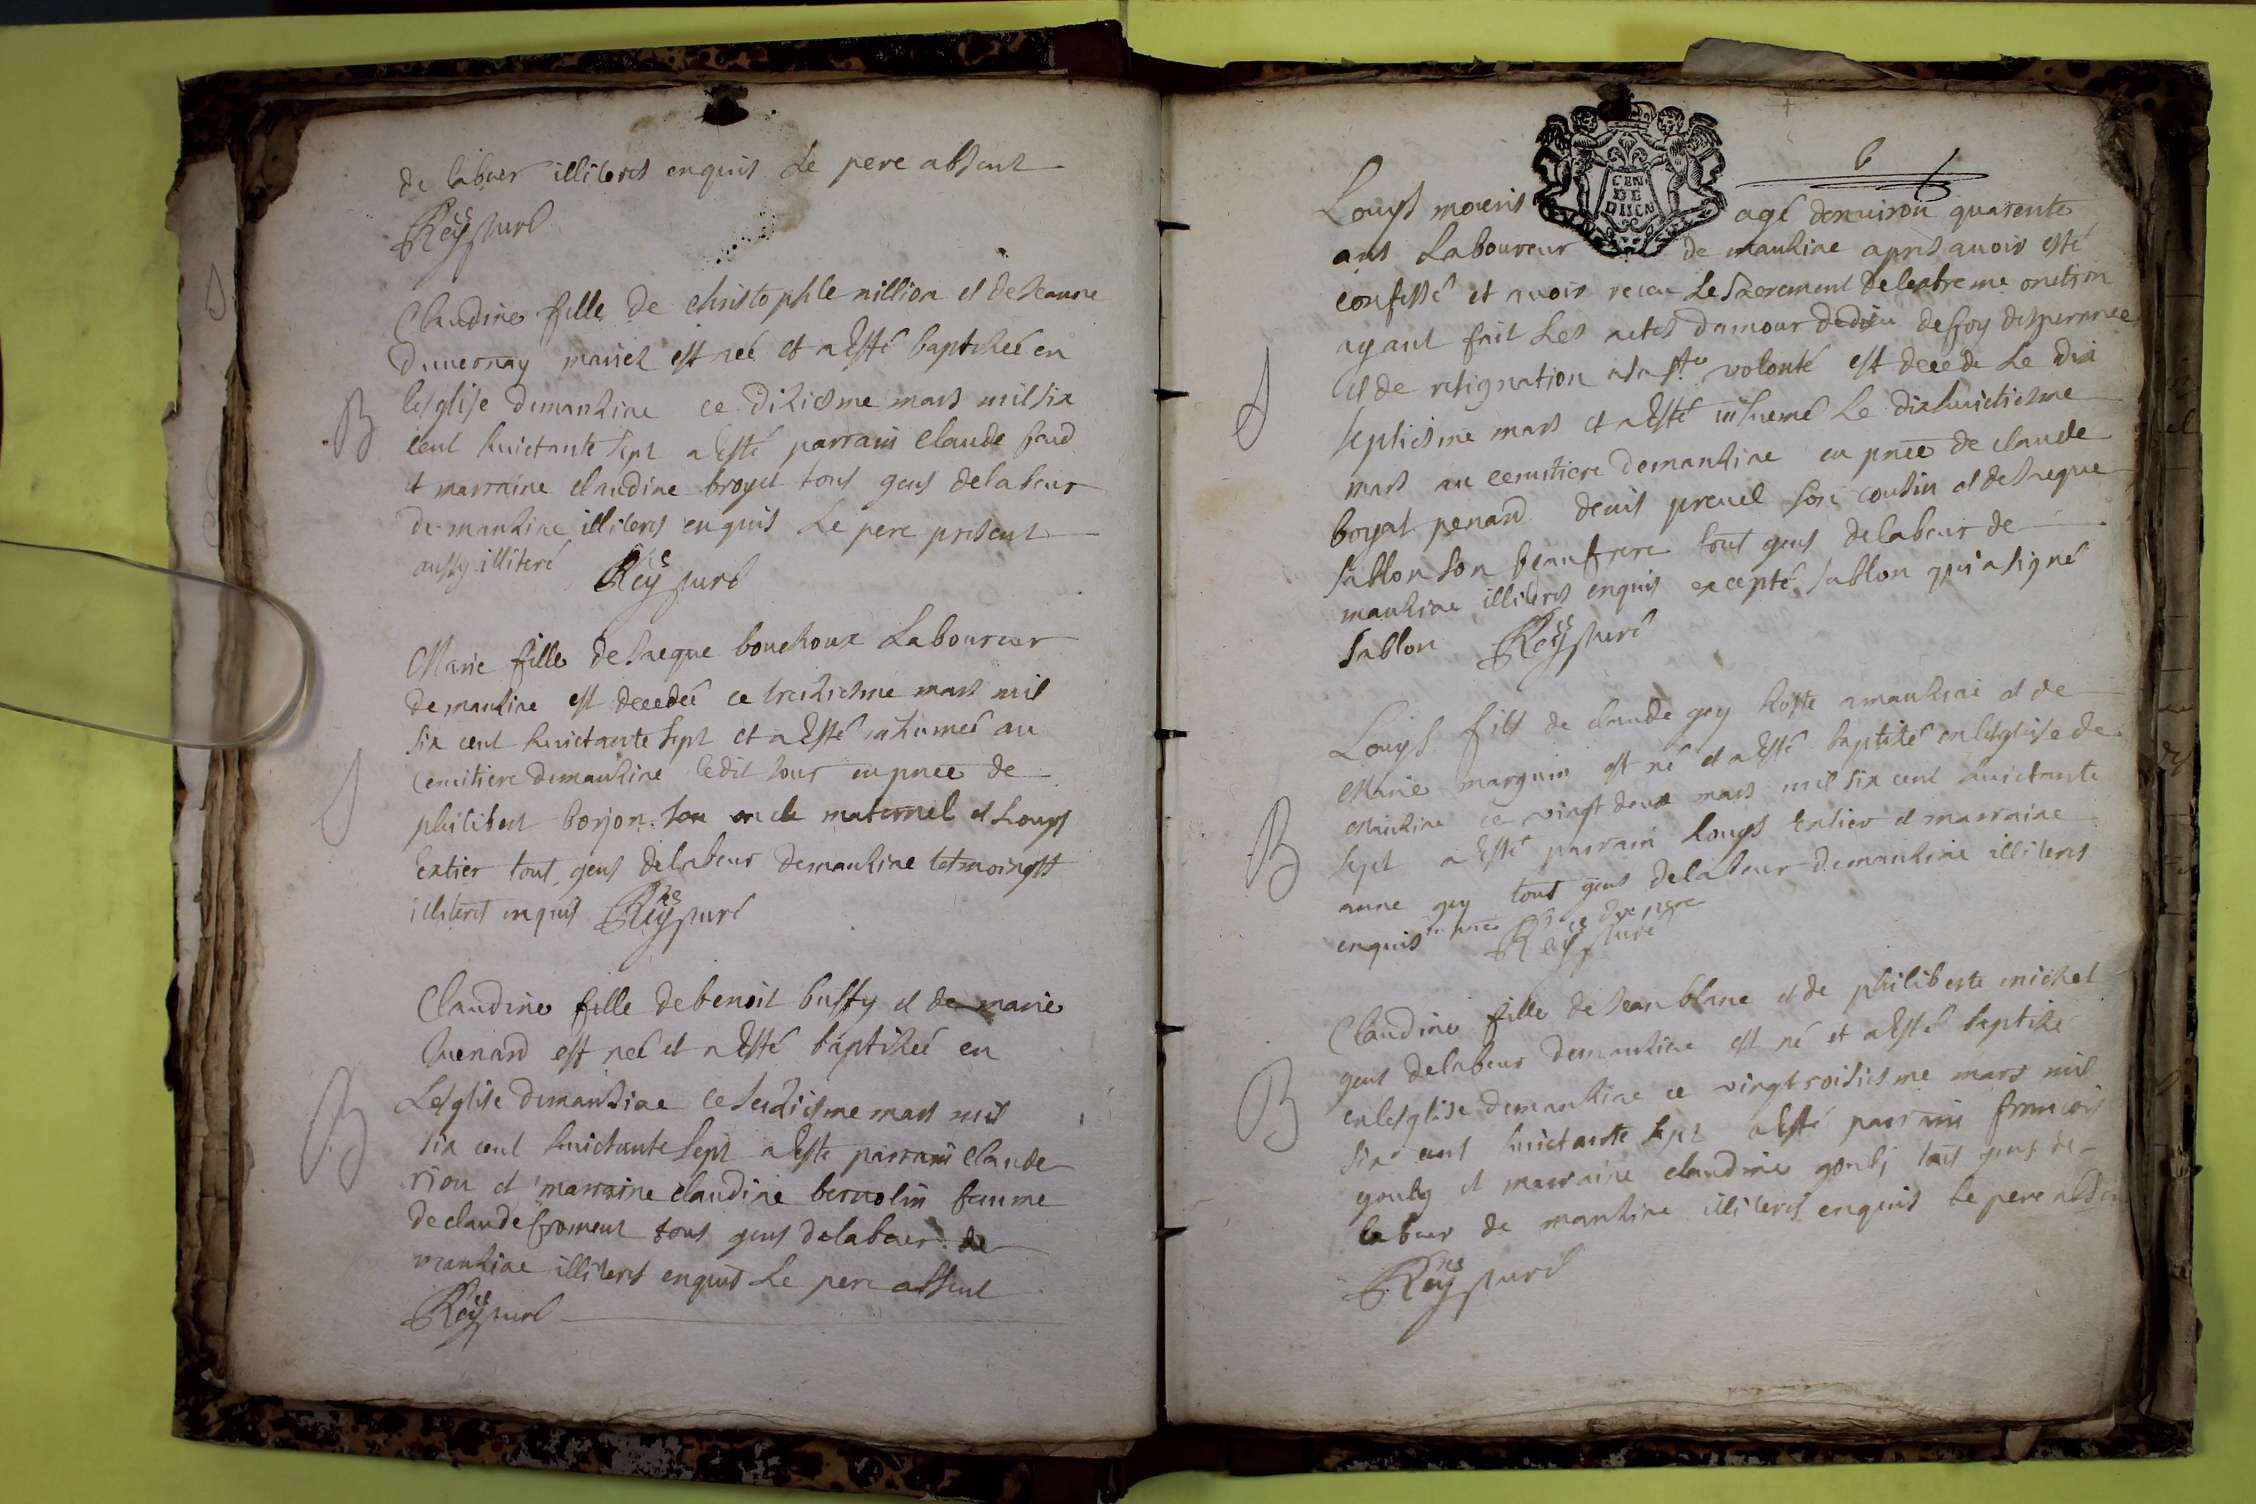 de labeur illiteres enquis Le pere absent
Rey curé
Claudine fille de christophle million et de Jeanne
Duuernay mariez est neé et a Esté baptiseé en
lesglise demanziae ce dixiesme mars mil six
cent huictante sept a Esté parrain Claude
et marraine claudine broyet tous gens delabeur
de manziae illiteres enquis Le pere present
aussy illiteré Rey curé
Marie fille deJaeque bouchoux Laboureur
demanziae est decedeé ce treiziesme mars mil
six cent huictante sept et a Esté inhumeé au
cemitiere demanziae ledit Jour en pnce de
philibert borjon son oncle maternel et Louys
Entier tout gens delabeur demanziae tesmoings
illiteres enquis Rey curé
Claudine fille debenoit buffy et de marie
est neé et a Esté baptiseé en
Lesglise demanziae ce seiziesme mars mil
six cent huictante sept a Esté parrain Claude
rion et marraine claudine bernolin femme
declaude froment tous gens delabeur de
manziae illiteres enquis Le pere absent
Rey curé
6
GEN
DE
DIION
Louys agé denuiron quarente
ans Laboureur de manziae apres auoir esté
confessé et auoir receu Le Sacrement delextreme onction
ayant fait Les actes damour dedieu defoy desperance
et de resignation a sa ste volonté est decedé Le dix
septiesme mars et a Esté inhumé Le dixhuictiesme
mars au cemitiere demanziae en pnce de claude
boyat penard denis preuel son cousin et deJaeque
Sablon son beaufrere tout gens delabeur de
manziae illiteres enquis excepté Sablon qui a signé
Sablon Rey curé
Louys fils de claude goy hoste a manziae et de
Marie marguin est né et a Esté baptisé enlesglise de
Manziae ce vingt deux mars mil six cent huictante
sept a Esté parrain Louys Entier et marraine
anne goy tout gens delabeur demanziae illiteres
enquis en pnce du pere
Rey curé
Claudine fille de Jean blanc et de philiberte michel
gens delabeur demanziae est né et a Esté baptisé
enlesglise demanziae ce vingtroisiesme mars mil
six cent huictante sept a Esté parrain francois
gouly et marraine claudine gouly tout gens de
labeur de manziae illiteres enquis le pere absen
Rey curé